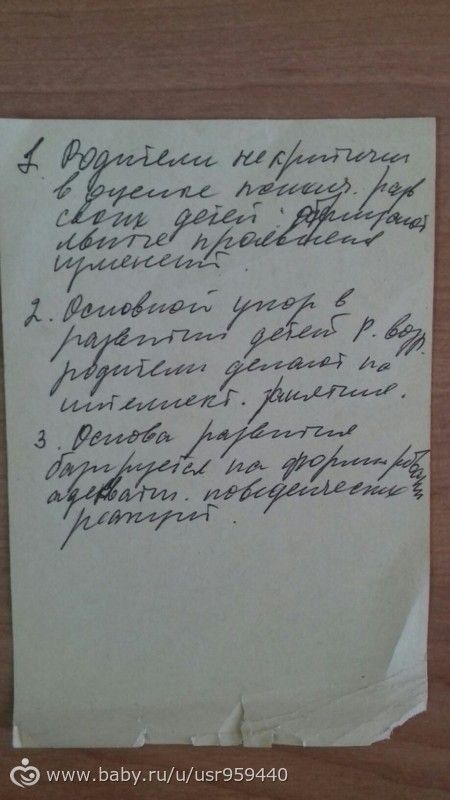 1. Родители некритичны
в оценке психич. разв
своих детей. отрицают
проявления
изменений.
2. Основной упор в
развитии детей р. возр.
родители делают на
интеллект. занятия.
3. Основа развития
базируется на формировании
адекватн. поведенческих
реакций.
www.baby.ru/u/usr959440